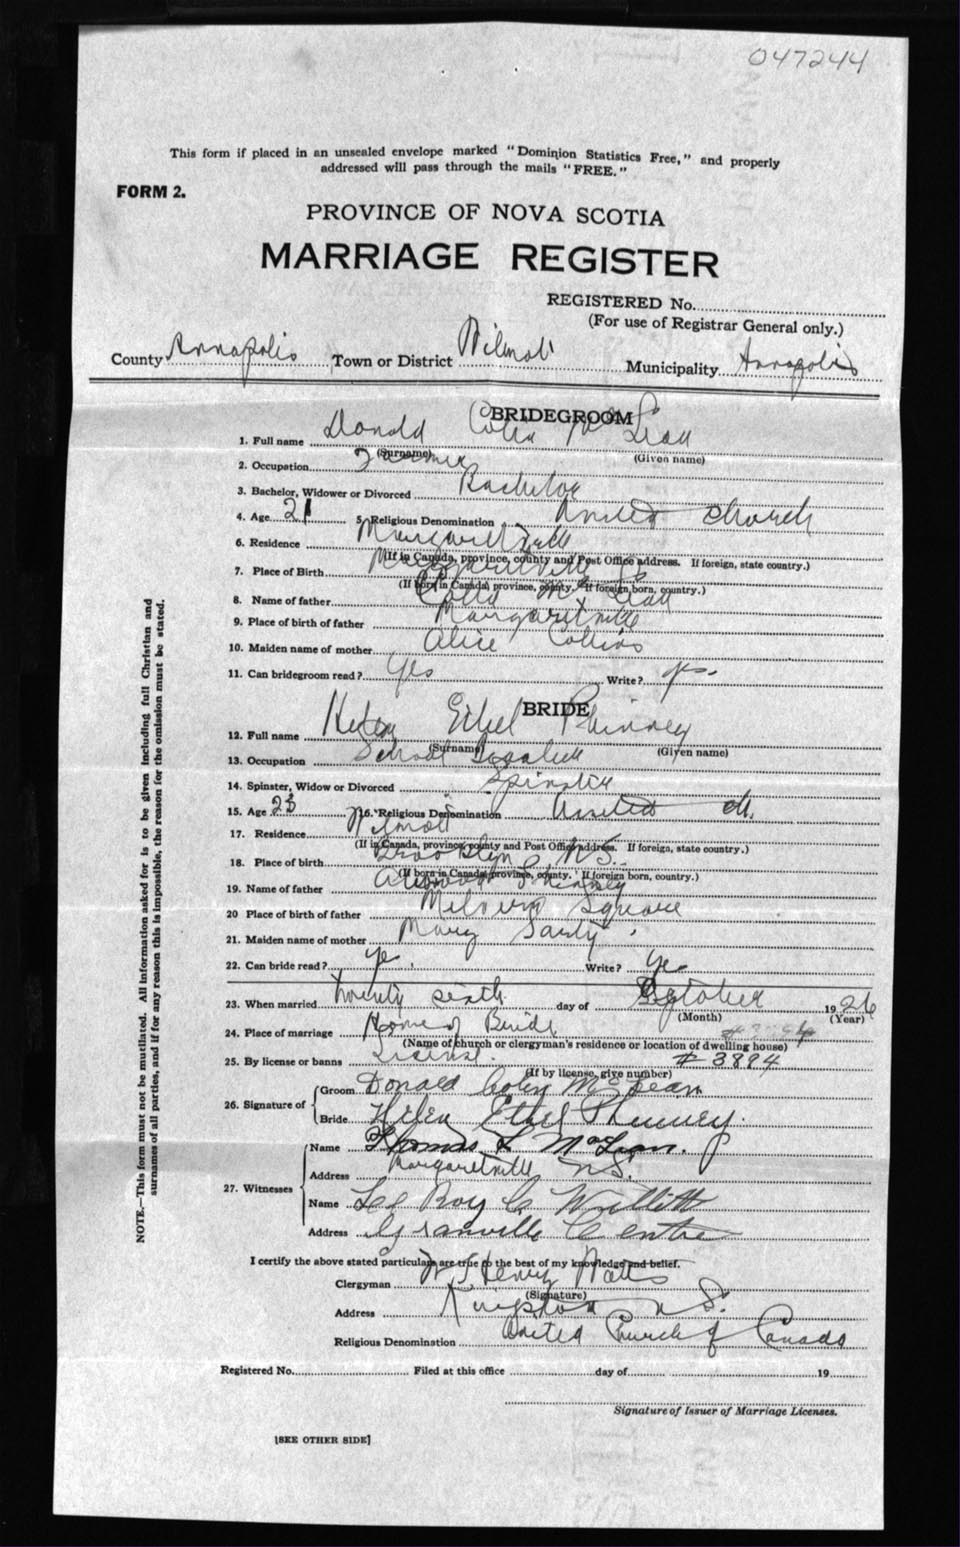 047244
This form if placed in an unsealed envelope marked "Dominion Statistics Free," and properly
addressed will pass through the mails "FREE."
FORM 2.
PROVINCE OF NOVA SCOTIA
MARRIAGE REGISTER
REGISTERED No.
(For use of Registrar General only.)
County Annapolis Town or District Wilmot Municipality Annapolis
BRIDEGROOM
1. Full name Donald Colin McLean
(Surname) (Given name)
2. Occupation Farmer
3. Bachelor, Widower or Divorced Bachelor
4. Age 21 5. Religious Denomination United Church
6. Residence Margaretville
(If in Canada, province, county and Post Office address. If foreign, state country.)
7. Place of Birth Margaretville NS
(If born in Canada, province, county. If foreign born, country.)
8. Name of father McLean
9. Place of birth of father Margaretville
10. Maiden name of mother Alice Collins
11. Can bridegroom read? Yes Write? yes.
BRIDE
12. Full name Helen Ethel Phinney
(Surname) (Given name)
13. Occupation School Teacher
14. Spinster, Widow or Divorced Spinster
15. Age 25 16. Religious Denomination United Ch.
17. Residence Wilmot
(If in Canada, province, county and Post Office address. If foreign, state country.)
18. Place of birth Brooklyn, N.S.
(If born in Canada, province, county. If foreign born, country.)
19. Name of father Phinney
20 Place of birth of father Melvern Square
21. Maiden name of mother Mary
22. Can bride read? yes Write? yes
23. When married twenty sixth day of October 1926
(Month) (Year)
24. Place of marriage Home of Bride
(Name of church or clergyman's residence or location of dwelling house)
25. By license or banns License. # 3894
(If by license, give number)
26. Signature of Groom Donald Colin McLean
Bride Helen Ethel Phinney.
27. Witnesses Name Thomas L McLean.
Address Margaretville N.S.
Name Le Roy C Willett
Address Granville Centre
I certify the above stated particulars are true to the best of my knowledge and belief.
Clergyman Henry Watts
(Signature)
Address Kingston N S.
Religious Denomination United Church of Canada
Registered No. Filed at this office day of 19
Signature of Issuer of Marriage Licenses.
[SEE OTHER SIDE]
NOTE.—This form must not be mutilated. All information asked for is to be given including full Christian and
surnames of all parties, and if for any reason this is impossible, the reason for the omission must be stated.